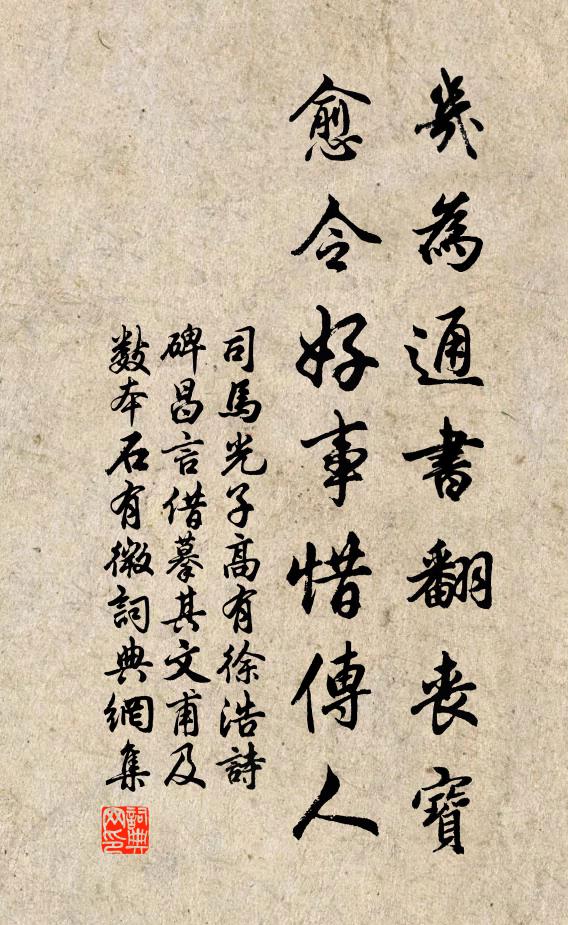 幾為通書翻喪寶
愈令好事惜傳人
司馬光子高有徐浩詩
碑昌言借摹其文甫及
數本石有微詞典網集
詞典